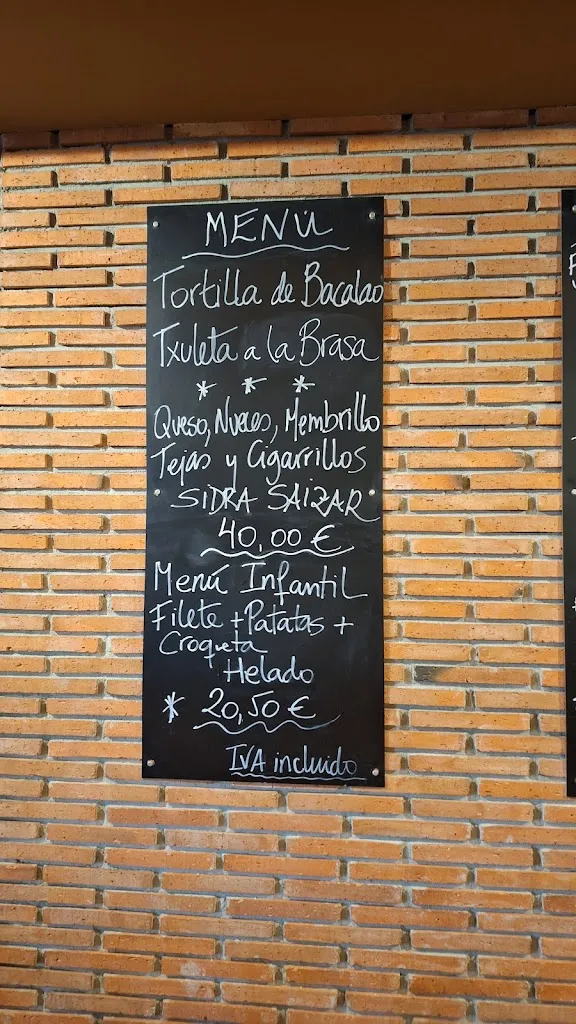 MENÚ
Tortilla de Bacalao
Txuleta a la Brasa
* * *
Queso, Nueces, Membrillo
Tejas y Cigarrillos
SIDRA SAIZAR
40,00 €
Menú Infantil
Filete + Patatas +
Croqueta
Helado
* 20,50 €
IVA incluido